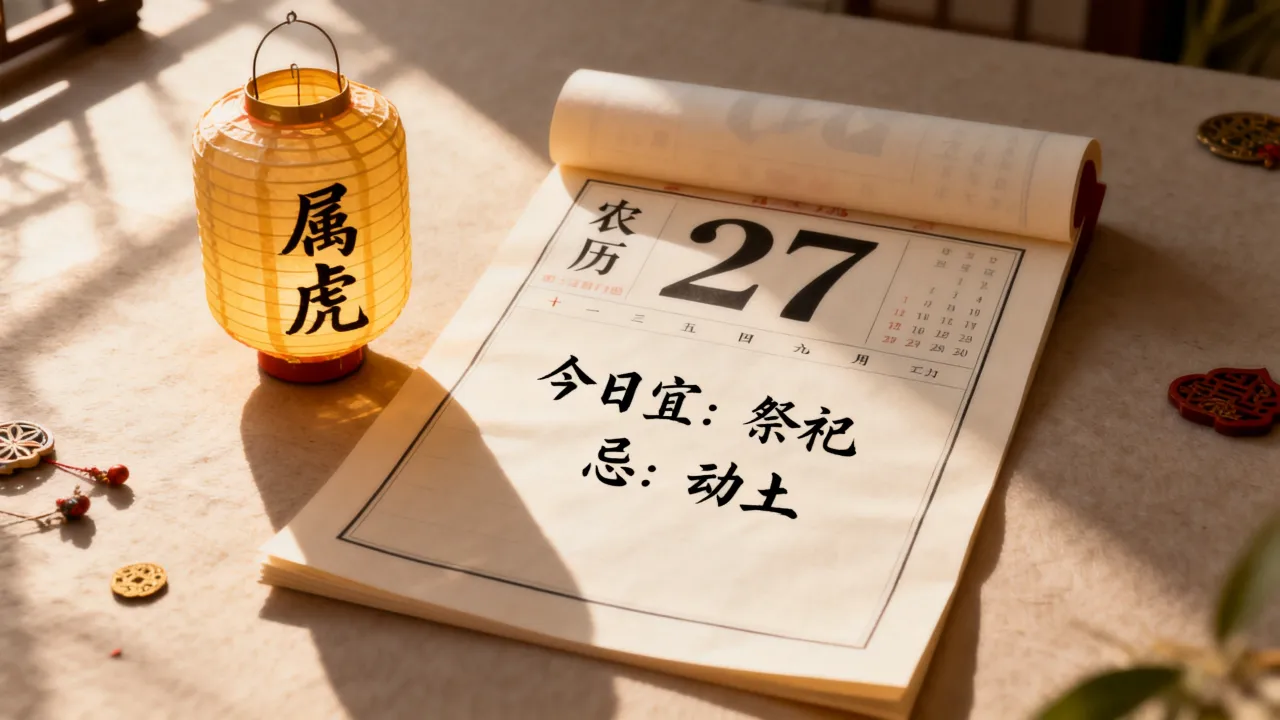 属虎
农历
27
十 一 三 五 四 九 月
今日宜：祭祀
忌：动土